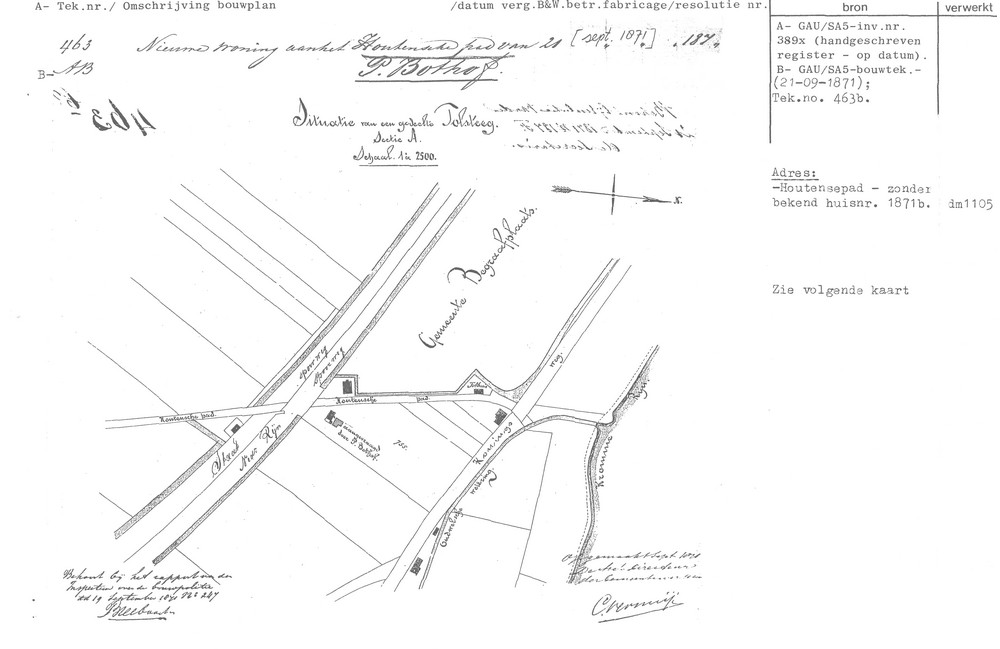 A- Tek.nr./ Omschrijving bouwplan /datum verg.B&W.betr.fabricage/resolutie nr.
463 Nieuwe woning aan het Houtensche pad van 21 [sept. 1871] 187
B- AB P. Bothof.
463
Situatie van een gedeelte Tolsteeg.
Sectie A.
Schaal 1 à 2500.
N.
Gemeente Begraafplaats.
Spoorweg
Houtensche pad.
Houtensche pad.
Staats
Nieuw Rijn
aangevraagd
door P. Bothof.
755.
weg.
Konings
Wetering
Oudwulver
Kromme Rijn
Behoort bij het rapport van den
Inspecteur van de bouwpolitie
dd 19 September 1871 No 247
Opgemaakt Sept. 1871
C. Vermeijs
bron
verwerkt
A- GAU/SA5-inv.nr.
389x (handgeschreven
register - op datum).
B- GAU/SA5-bouwtek.-
(21-09-1871);
Tek.no. 463b.
Adres:
-Houtensepad - zonder
bekend huisnr. 1871b. dm1105
Zie volgende kaart